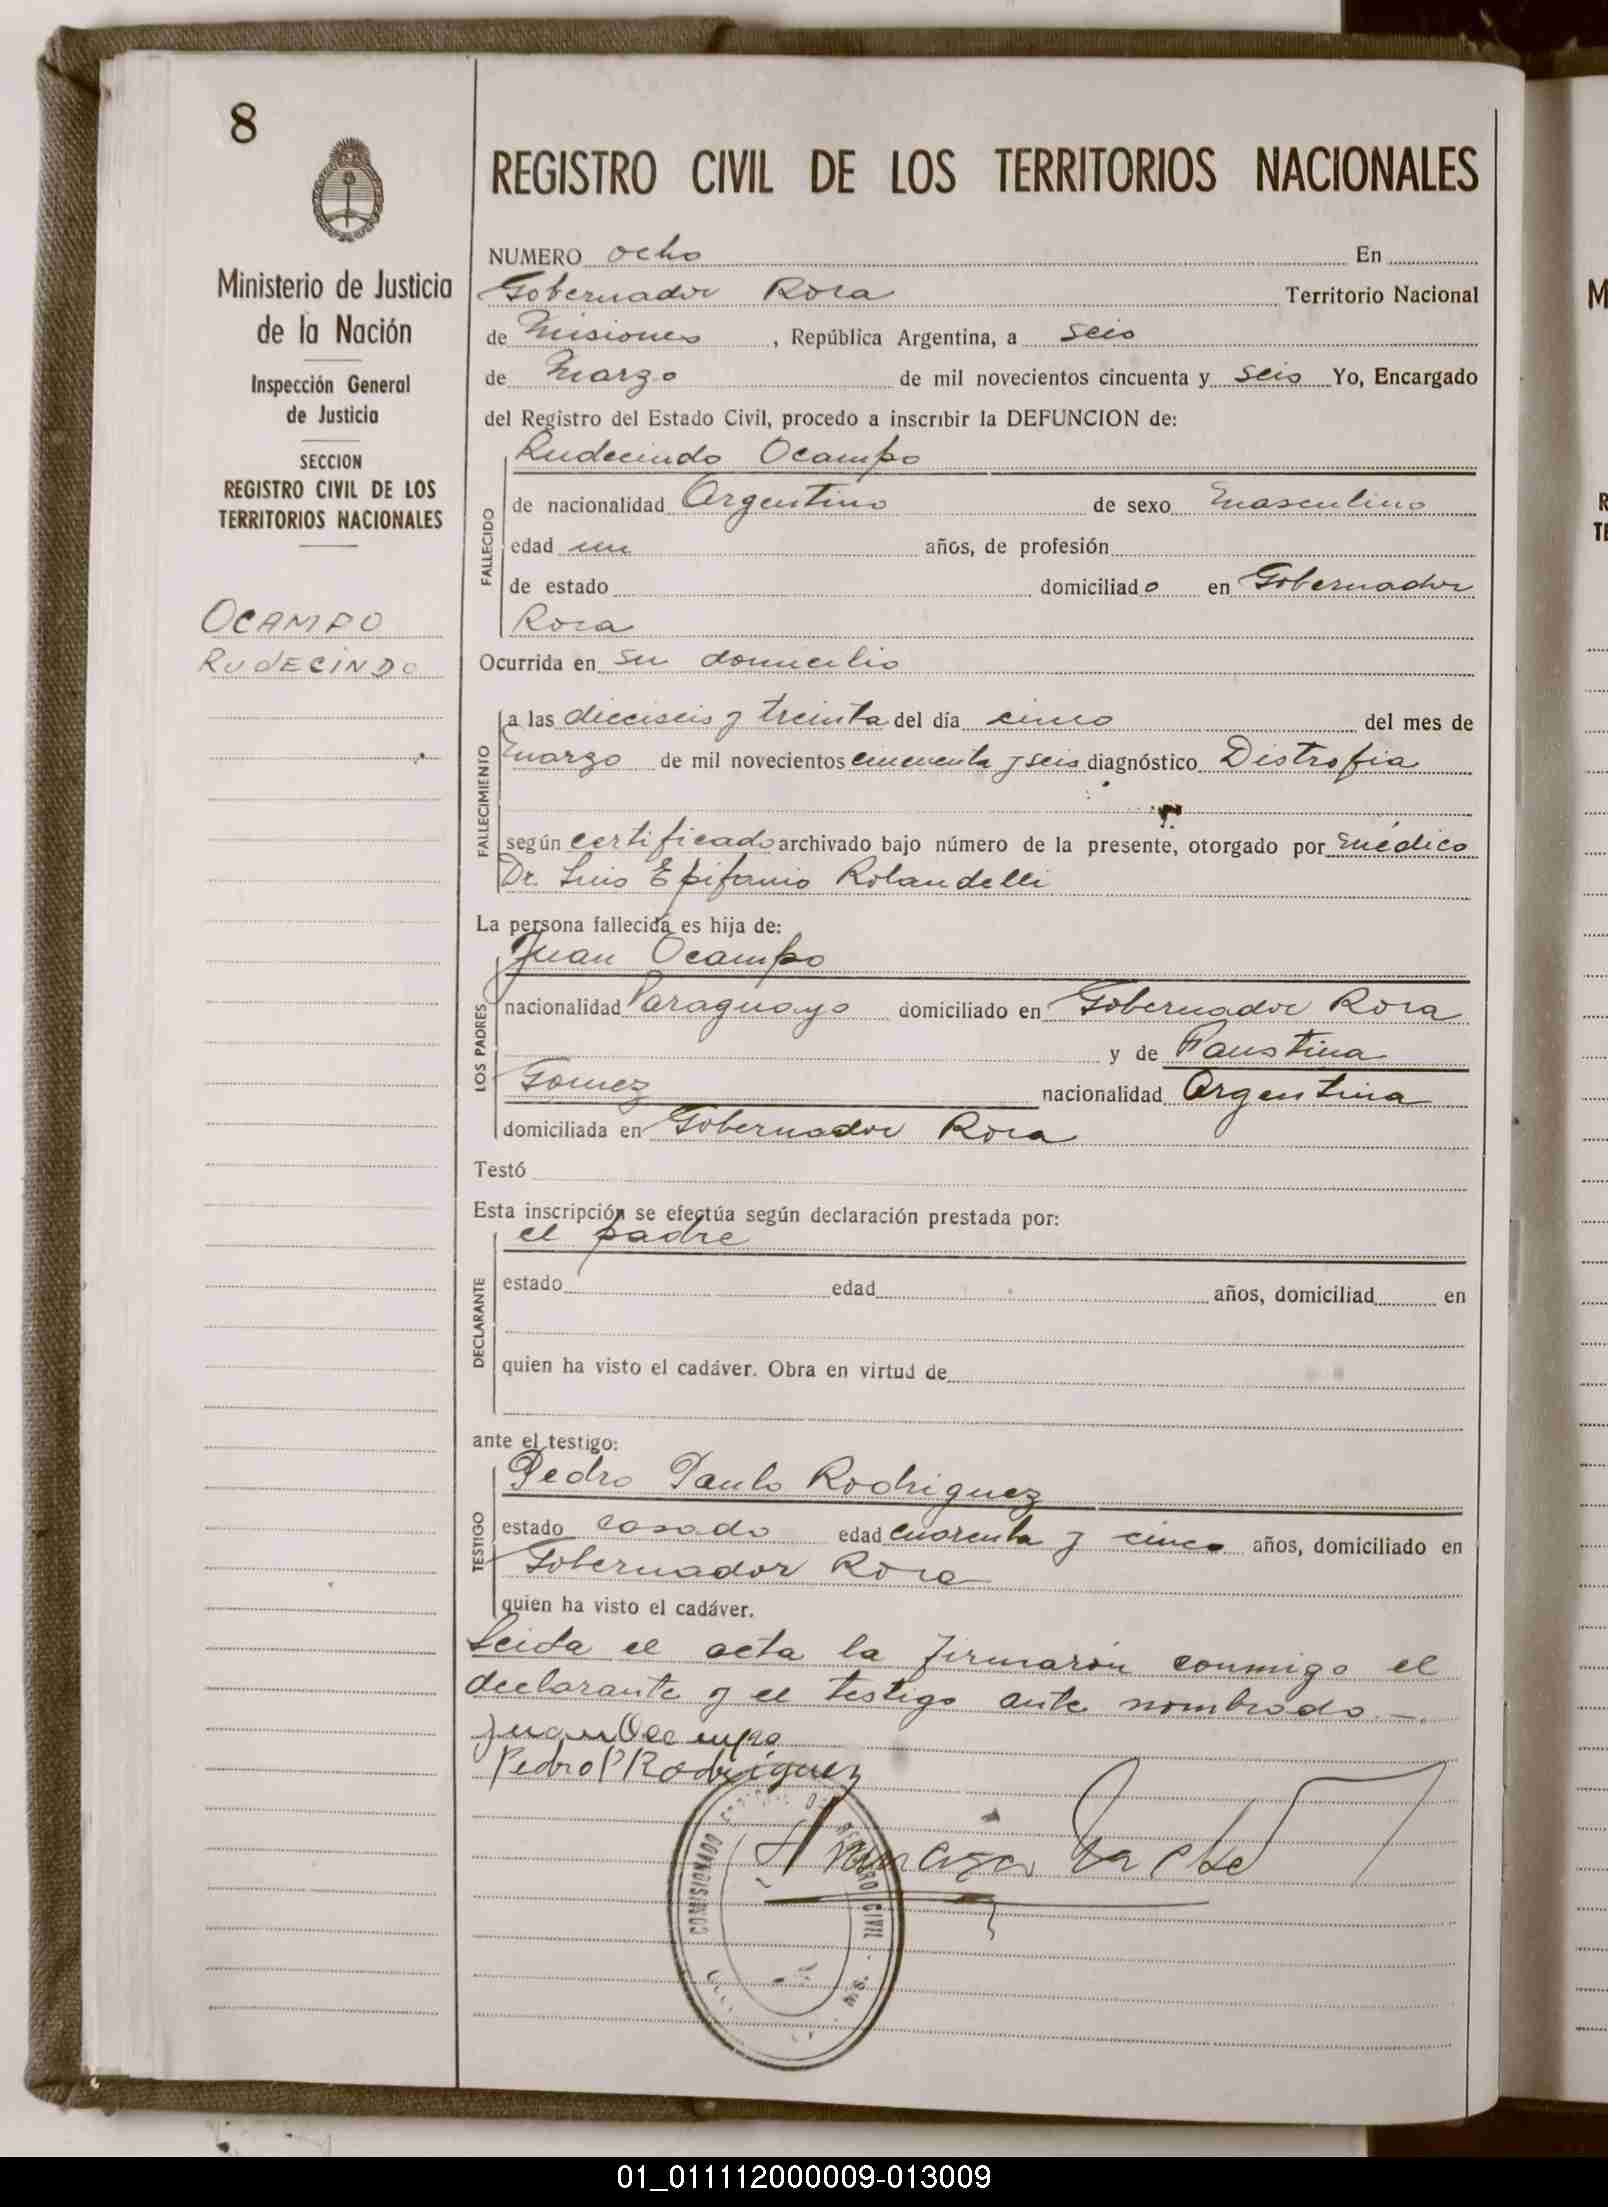 8
Ministerio de Justicia
de la Nación
Inspección General
de Justicia
SECCION
REGISTRO CIVIL DE LOS
TERRITORIOS NACIONALES
OCAMPO
RUDECINDO
REGISTRO CIVIL DE LOS TERRITORIOS NACIONALES
NUMERO ocho En
Gobernador Roca Territorio Nacional
de Misiones, República Argentina, a seis
de Marzo de mil novecientos cincuenta y seis Yo, Encargado
del Registro del Estado Civil, procedo a inscribir la DEFUNCION de:
Rudecindo Ocampo
FALLECIDO
de nacionalidad Argentino de sexo masculino
edad un años, de profesión
de estado domiciliado en Gobernador
Roca
Ocurrida en su domicilio
FALLECIMIENTO
a las dieciseis y treinta del día cinco del mes de
marzo de mil novecientos cincuenta y seis diagnóstico Distrofia
según certificado archivado bajo número de la presente, otorgado por médico
Dr. Luis Epifanio Rolandelli
La persona fallecida es hija de:
Juan Ocampo
LOS PADRES
nacionalidad Paraguayo domiciliado en Gobernador Roca
y de Faustina
Gomez nacionalidad Argentina
domiciliada en Gobernador Roca
Testó
Esta inscripción se efectúa según declaración prestada por:
el padre
DECLARANTE
estado edad años, domiciliad en
quien ha visto el cadáver. Obra en virtud de
ante el testigo:
Pedro Paulo Rodriguez
TESTIGO
estado casado edad cuarenta y cinco años, domiciliado en
Gobernador Roca
quien ha visto el cadáver.
Leida el acta la firmarón conmigo el
declarante y el testigo ante nombrado.-.
Juan Ocampo
Pedro P Rodriguez
COMISIONADO REGISTRO CIVIL
01_011112000009-013009